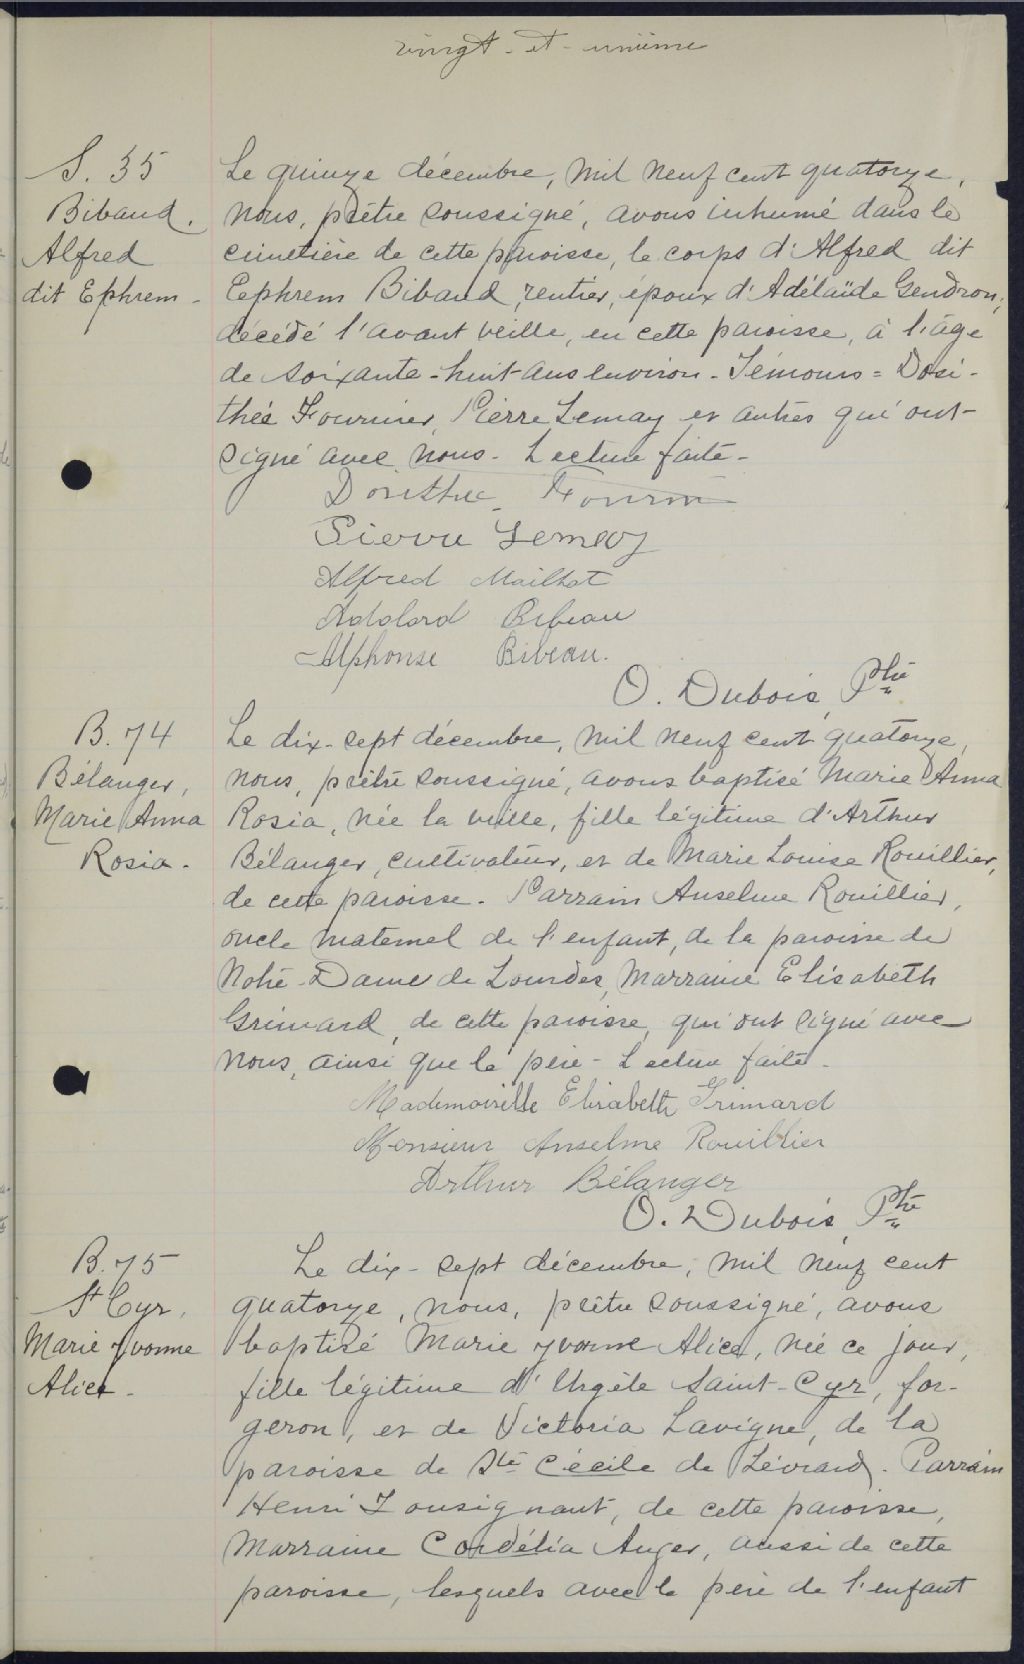 vingt-et-unième
S. 35
Bibaud.
Alfred
dit Ephrem -
Le quinze décembre, mil neuf cent quatorze,
nous, prêtre soussigné, avons inhumé dans le
cimetière de cette paroisse, le corps d'Alfred dit
Eephrem Bibaud, rentier, époux d'Adélaïde Gendron,
décédé l'avant veille, en cette paroisse, à l'âge
de soixante-huit ans environ - Témoins = Dosi-
thée Fournier, Pierre Lemay et autres qui ont
signé avec nous - Lecture faite -
Dosithee Fourni
Pierre Lemay
Alfred Mailhot
Adolard Bibeau
Alphonse Bibeau.
O. Dubois, Ptre
B. 74
Bélanger,
Marie Anna
Rosia -
Le dix-sept décembre, mil neuf cent quatorze,
nous, prêtre soussigné, avons baptisé Marie Anna
Rosia, née la veille, fille légitime d'Arthur
Bélanger, cultivateur, et de Marie Louise Rouillier,
de cette paroisse - Parrain Anselme Rouillier,
oncle maternel de l'enfant, de la paroisse de
Notre-Dame de Lourdes, Marraine Elisabeth
Grimard, de cette paroisse, qui ont signé avec
nous, ainsi que le père - Lecture faite -
Mademoiselle Elisabeth Grimard
Monsieur Anselme Rouillier
Arthur Bélanger
O. Dubois, Ptre
B. 75
St Cyr,
Marie Yvonne
Alice -
Le dix-sept décembre, mil neuf cent
quatorze, nous, prêtre soussigné, avons
baptisé Marie Yvonne Alice, née ce jour,
fille légitime d'Urgèle Saint-Cyr, for-
geron, et de Victoria Lavigne, de la
paroisse de Ste Cécile de Lévrard. Parrain
Henri Tousignant, de cette paroisse,
Marraine Cordélia Auger, aussi de cette
paroisse, lesquels avec le père de l'enfant